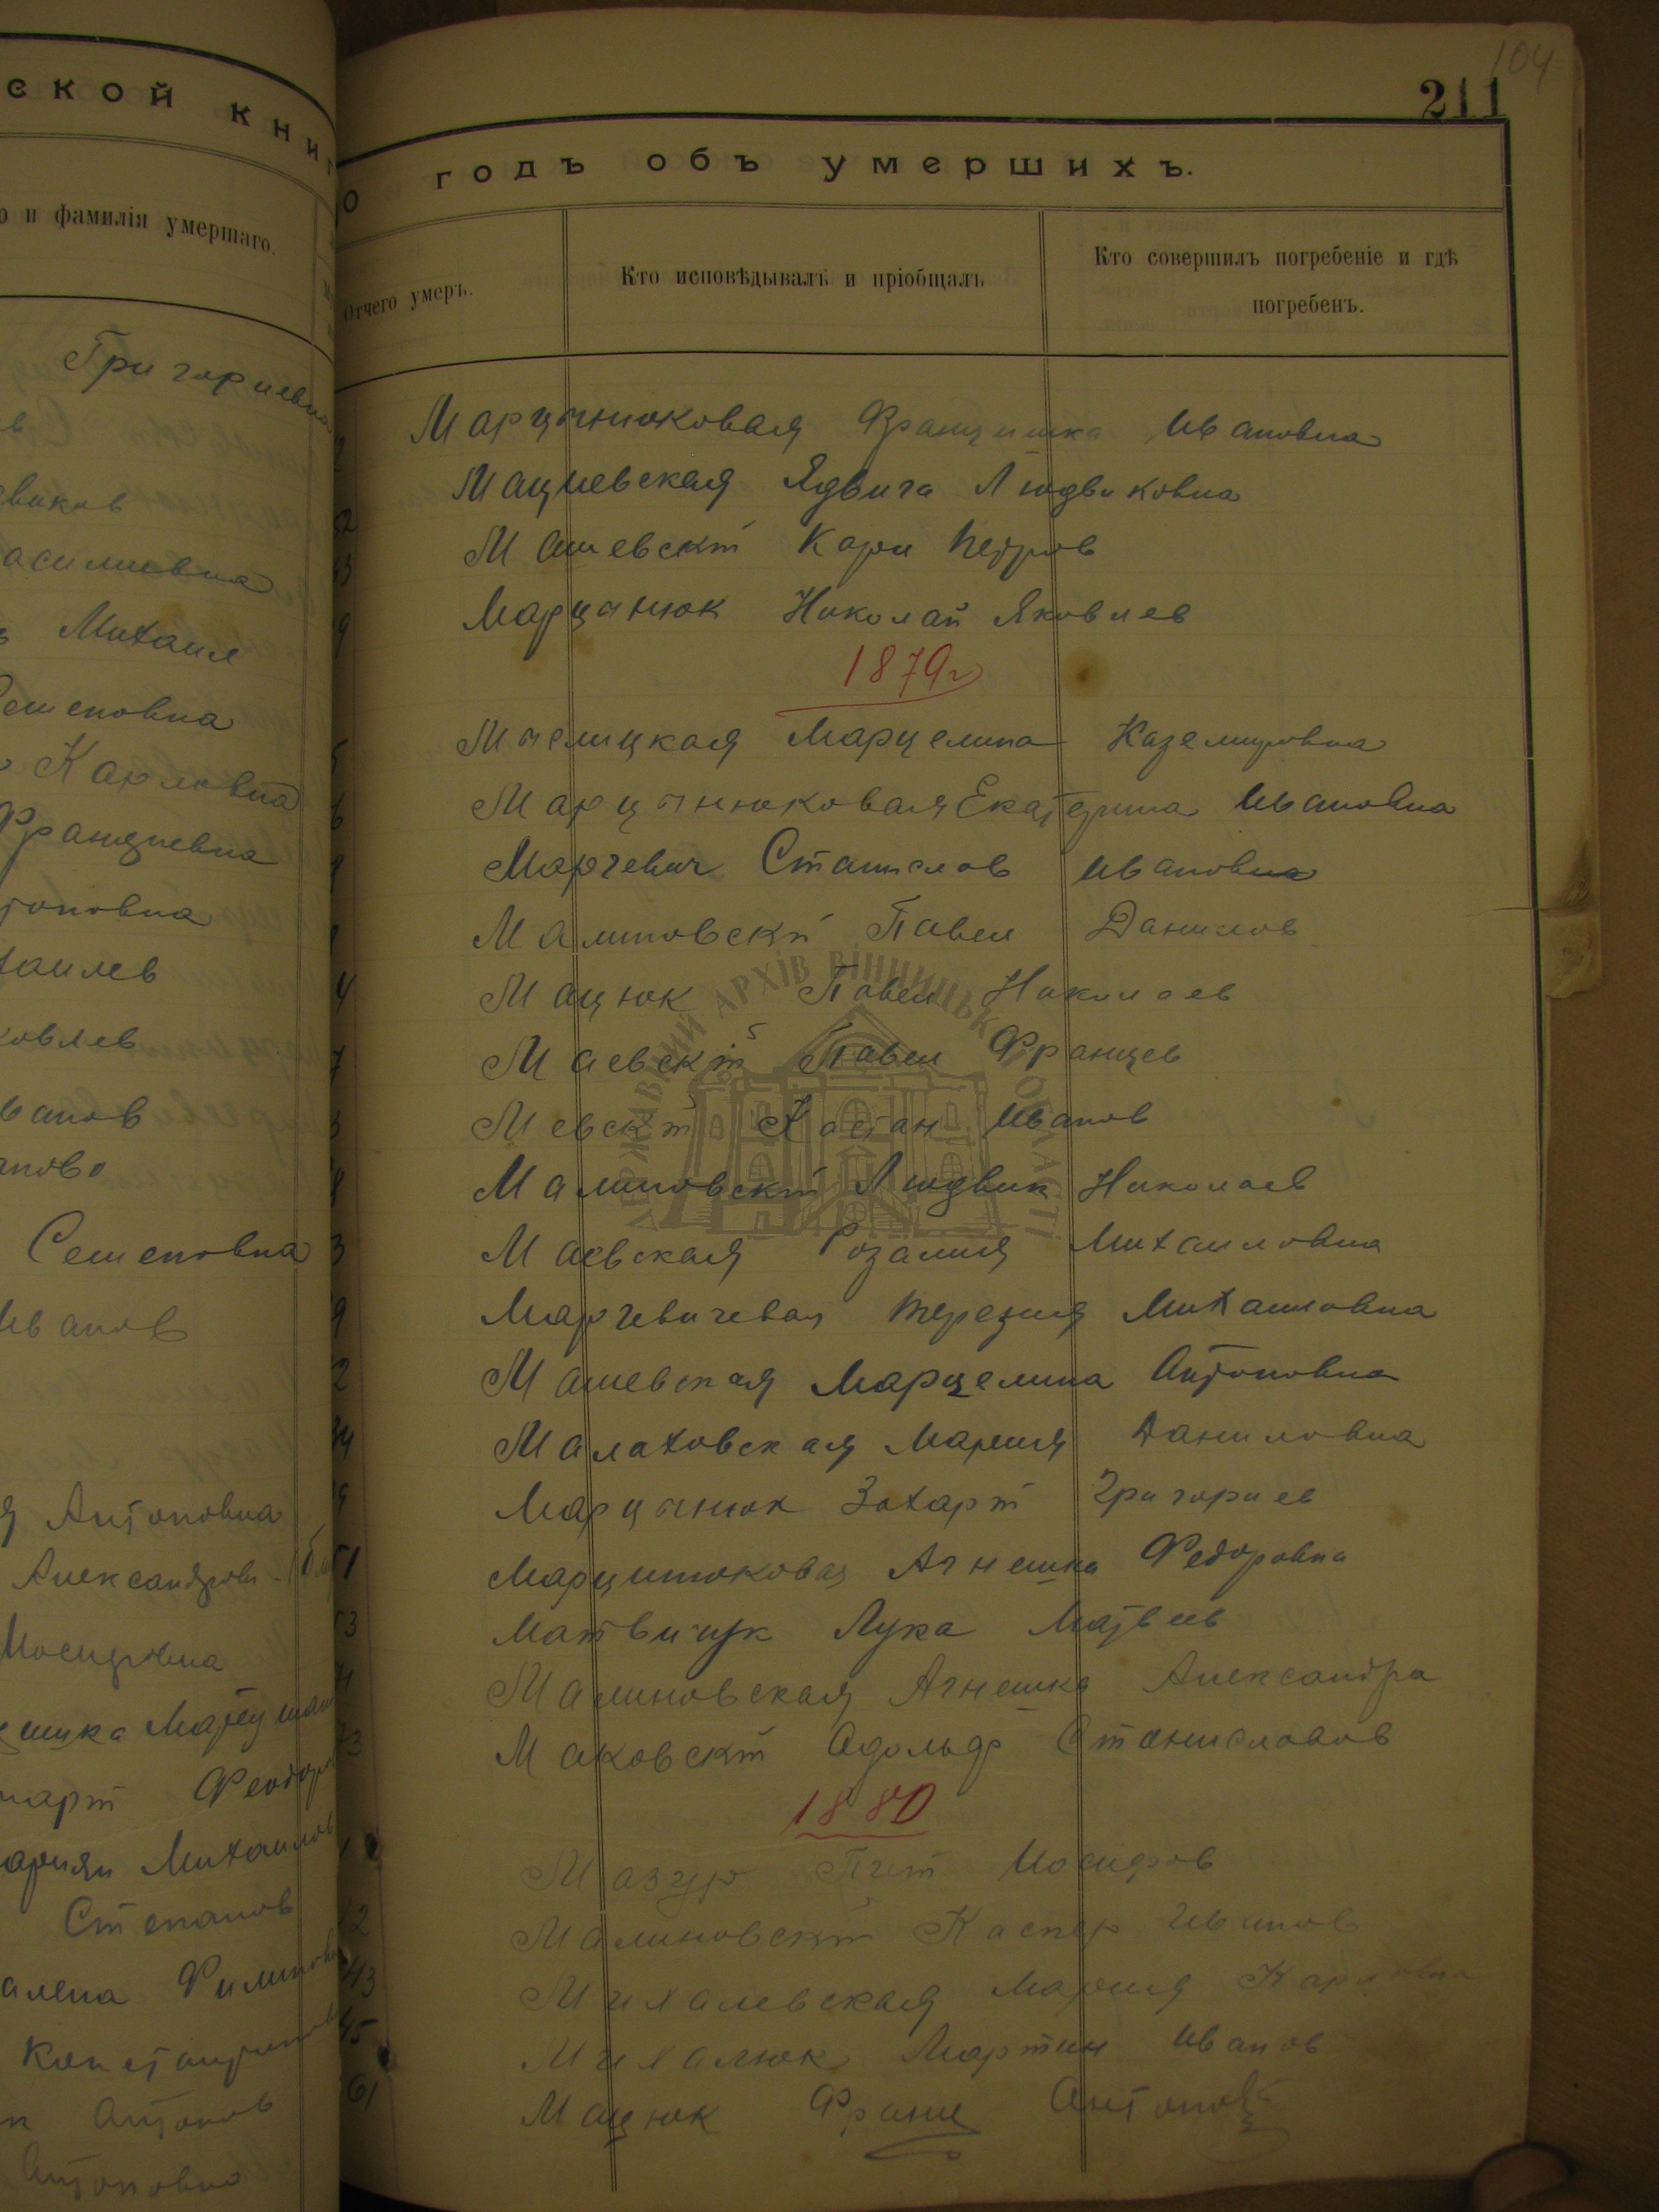 ской книг
о и фамилія умершаго.
Григориевна
виков
асилиевна
Михаил
Семеновна
Карловна
Францевна
тоновна
хаилев
ковлев
ванов
Семеновна
Иванов
Антоновна
Александров
Иосифовна
шка
Феодоро
Михаилов
Степанов
Антонов
Антоновна
104
211
о годъ объ умершихъ.
Отчего умеръ.
Кто исповѣдывалъ и пріобщалъ
Кто совершилъ погребеніе и гдѣ
погребенъ.
Марцынюковая Францишка Ивановна
Мациевская Ядвига Людвиковна
52
Машевскій Карл Петров
Марцынюк Николай Яковлев
1879г
Марцелина Каземировна
Марцынюковая Екатерина Ивановна
Марчевич Станислов Ивановна
Малиновскй Павел Данилов
Мацюк Павел Николаев
Маевскій Павел Францев
Мевскій Иванов
Малиновскій Людвик Николаев
Маевская Розалия Михаиловна
Марчевичевая Терезия Михаиловна
Машевская Марцелина Антоновна
Малаховская Мария Даниловна
Марцынюк Захарій Григориев
Марцинюковая Агнешка Федоровна
Матвийчук Лука Матвеев
Малиновская Агнешка Александра
Маковскій Адольф Станиславов
1880
Мазур Иосифов
Малиновскій Каспер Иванов
Михалевская Мария Карловна
Михалюк Мартин Иванов
Мацюк Франц Антонов
61
ДЕРЖАВНИЙ АРХІВ ВІННИЦЬКОЇ ОБЛАСТІ